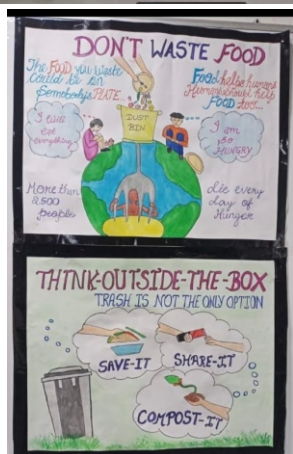 DON'T WASTE FOOD
The FOOD you waste
could be on
Somebody's PLATE...
Food helps humans
Humans should help
FOOD too...
DUST
BIN
I am
so
HUNGRY
More than
people
die every
day of
Hunger
THINK-OUTSIDE-THE-BOX
TRASH IS NOT THE ONLY OPTION
SAVE-IT
SHARE-IT
COMPOST-IT